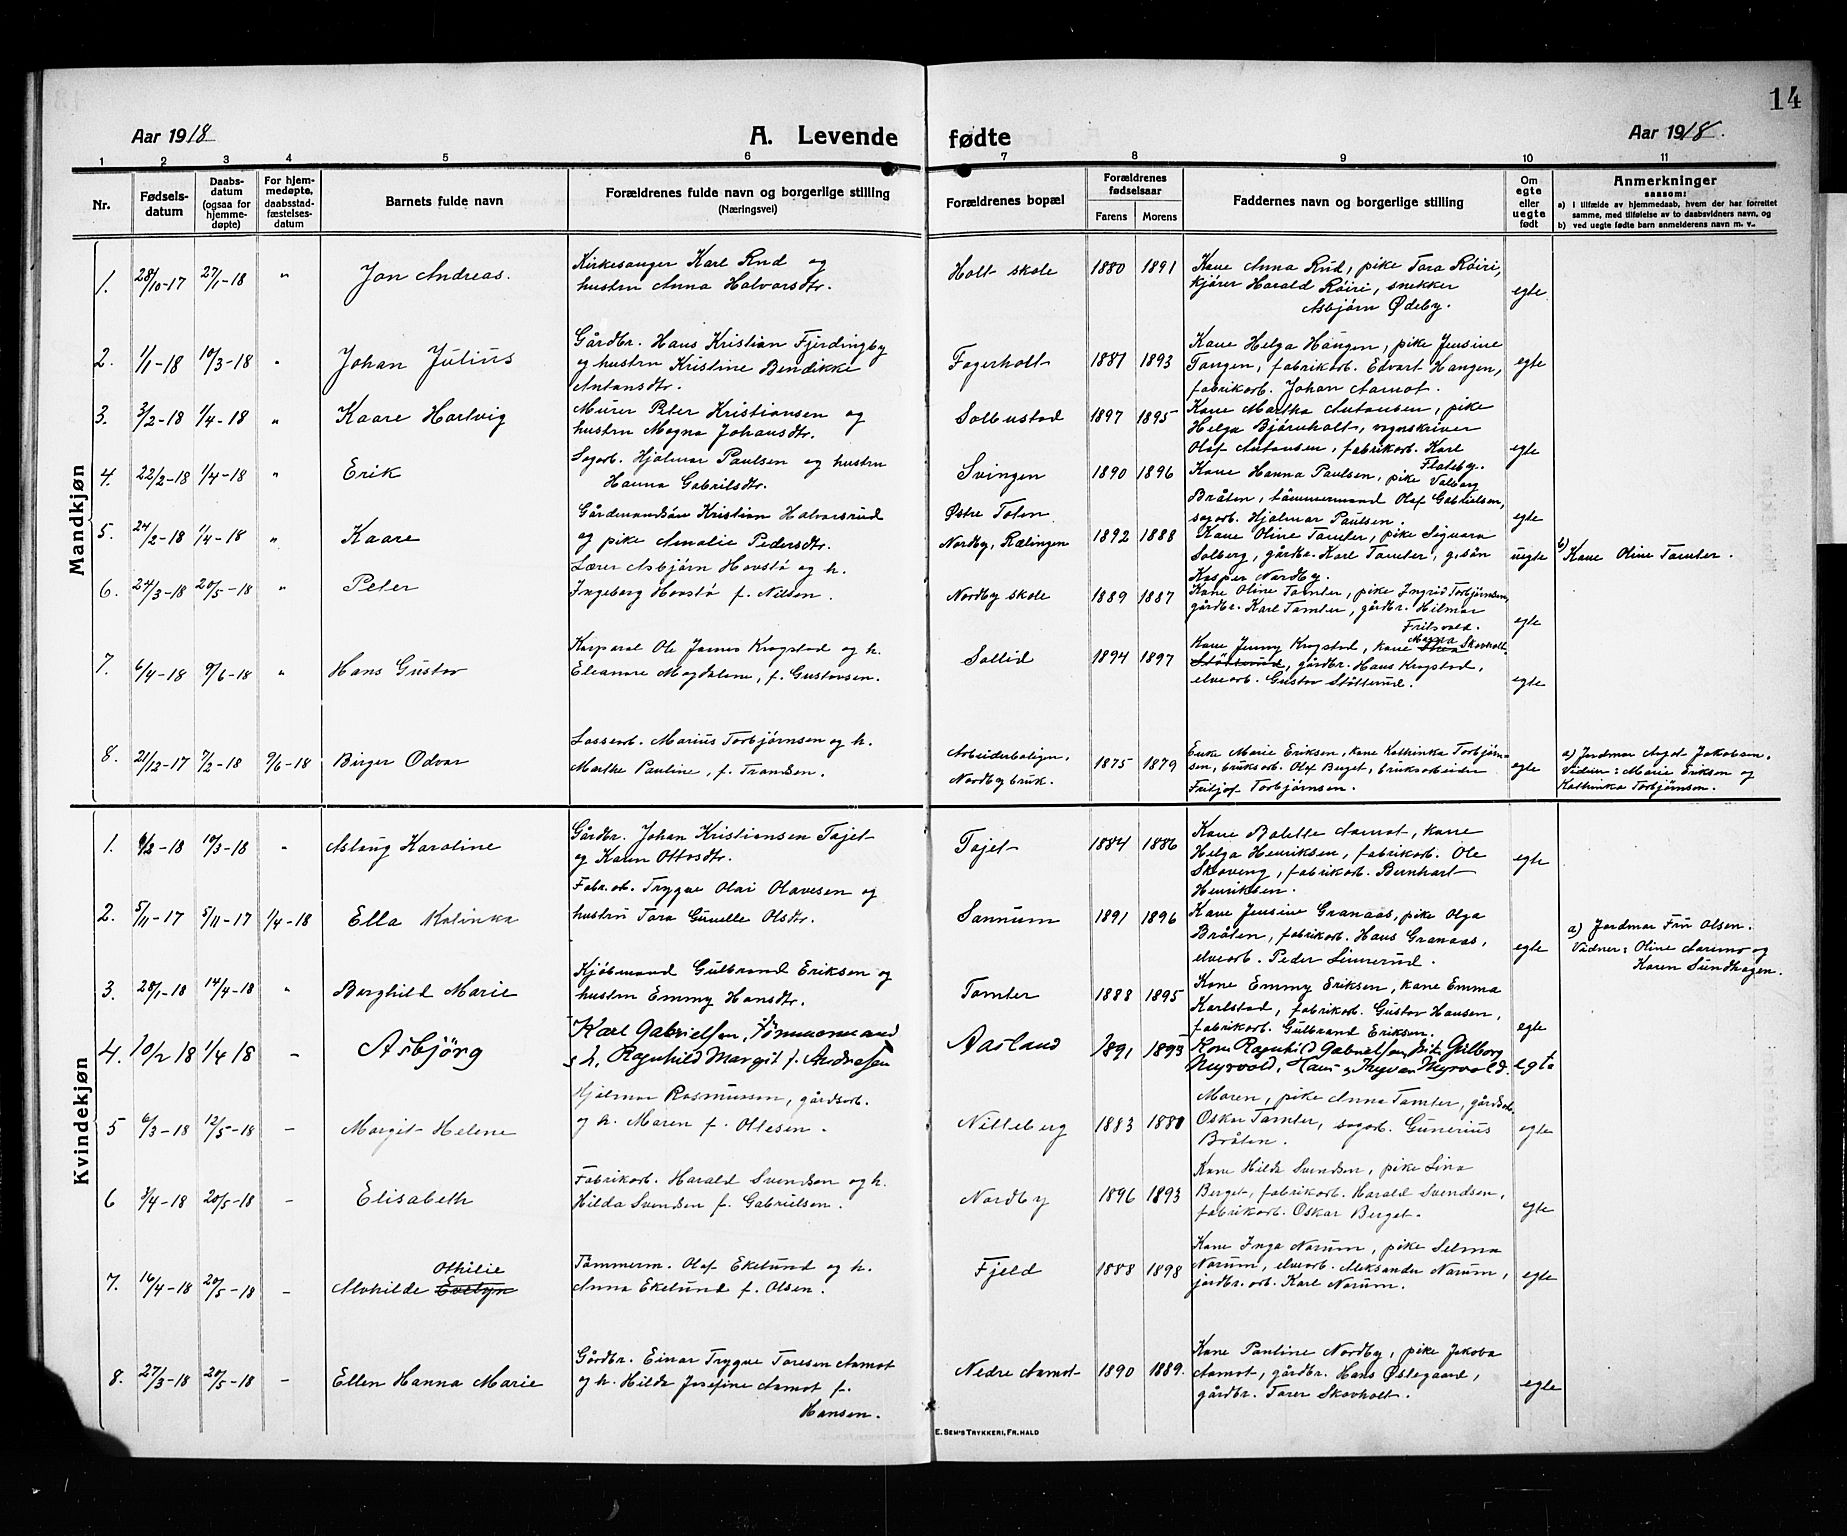 14
Aar 1918
A. Levende fødte
Aar 1918.
1 2 3 4 5 6 7 8 9 10 11
Nr.
Fødsels-
datum
Daabs-
datum
(ogsaa for
hjemme-
døpte)
For hjem-
medøpte,
daabsstad-
fæstelses-
datum
Barnets fulde navn
Forældrenes fulde navn og borgerlige stilling
(Næringsvei)
Forældrenes bopæl
Forældrenes
fødselsaar
Farens Morens
Faddernes navn og borgerlige stilling
Om
egte
eller
uegte
født
Anmerkninger
saasom:
a) I tilfælde av hjemmedaab, hvem der har forrettet
samme, med tilføielse av to daabsvidners navn, og
b) ved uegte fødte barn anmelderens navn m. v.
Mandkjøn
1. 28/10-17 27/1-18 " Jon Andreas.
Kirkesanger Karl Rud og
hustru Anna Halvarsdtr.
Holt skole 1880 1891
Kone Anna Rud, pike Tora Røiri,
kjører Harald Røiri, snekker
Asbjørn Ødeby.
egte
2. 1/1-18 10/3-18 " Johan Julius
Gårdbr. Hans Kristian Fjerdingby
og hustru Kristine Bendikke
Antonsdtr.
Fagerholt 1887 1893
Kone Helga Haugen, pike Jensine
Tangen, fabrikarb. Edvart Haugen,
fabrikarb. Johan Aamot.
egte
3. 3/2-18 1/4-18 " Kaare Hartvig
Murer Peter Kristiansen og
hustru Magna Johansdtr.
Solbustad 1897 1895
Kone Martha Antonsen, pike
Helga Bjørnholt, vognskriver
Olaf Antonsen, fabrikarb. Karl
Flateby.
egte
4. 22/2-18 1/4-18 " Erik
Sagarb. Hjalmar Paulsen og hustru
Hanna Gabrilsdtr.
Svingen 1890 1896
Kone Hanna Paulsen, pike Valborg
Bråten, tømmermand Olaf Gabrielsen,
sagarb. Hjalmar Paulsen.
egte
5. 24/2-18 1/4-18 " Kaare
Gårdmandsøn Kristian Halvorsrud
og pike Amalie Pedersdtr.
Østre Toten
Nordby, Rælingen 1892 1888
Kone Oline Tamter, pike Signora
Solberg, gårdbr. Karl Tamter, g.søn
Kasper Nordby.
uegte
b) Kone Oline Tamter.
6. 24/3-18 20/5-18 " Peter
Lærer Asbjørn Hovstø og h.
Ingeborg Hovstø f. Nilsen.
Nordby skole 1889 1887
Kone Oline Tamter, pike Ingrid Torbjørnsen,
gårdbr. Karl Tamter, gårdbr. Hilmar
Fritsvold.
egte
7. 6/4-18 9/6-18 " Hans Gustav
Korporal Ole James Krogstad og h.
Eleanore Magdalene, f. Gustavsen.
Sollid 1894 1897
Kone Jenny Krogstad, kone Magna Skovholt,
Støtterud, gårdbr. Hans Krogstad,
elvearb. Gustav Støtterud.
egte
8. 21/12-17 7/2-18 9/6-18 Birger Odvar
Lossearb. Marius Torbjørnsen og h.
Marthe Pauline, f. Trondsen.
Arbeiderboligen,
Nordby bruk. 1875 1879
Enke Marie Eriksen, kone Kathinka Torbjørn-
sen, bruksarb. Olaf Berget, bruksarbeider
Fritjof Torbjørnsen.
egte
a) Jordmor Aagot Jakobsen.
Vidner: Marie Eriksen og
Kathinka Torbjørnsen.
Kvindekjøn
1. 6/2-18 10/3-18 " Aslaug Karoline
Gårdbr. Johan Kristiansen Tajet
og Karen Ottosdtr.
Tajet 1884 1886
Kone Bolette Aamot, kone
Helga Henriksen, fabrikarb. Ole
Skoveng, fabrikarb. Bernhart
Henriksen.
egte
2. 5/11-17 5/11-17 1/4-18 Ella Katinka
Fabr.arb. Trygve Olai Olavesen og
hustru Tora Gunelle Olsdtr.
Sannum 1891 1896
Kone Jensine Granaas, pike Olga
Bråten, fabrikarb. Hans Granaas,
elvearb. Peder Sinnerud.
egte
a) Jordmor Fru Olsen.
Vidner: Oline Aarmo og
Karen Sundhagen.
3. 28/1-18 14/4-18 " Borghild Marie
Kjøbmand Gulbrand Eriksen og
hustru Emmy Hansdtr.
Tamter 1888 1895
Kone Emmy Eriksen, kone Emma
Karlstad, fabrikarb. Gustav Hansen,
fabrikarb. Gulbrand Eriksen.
egte
4. 10/2 18 1/4 18 - Asbjørg
Karl Gabrielsen, tømmermand
o h. Ragnhild Margit f. Andresen
Aasland 1891 1893
Kone Ragnhild Gabrielsen, Gulborg
Myrvold, Hans o Trygve Myrvold.
egte
5 6/3-18 12/5-18 - Margit Helene
Hjalmar Rasmussen, gårdsarb.
og h. Maren f. Ottesen.
Nitteberg 1883 1880
Moren, pike Anna Tamter, gårdsarb.
Oskar Tamter, sagarb. Gunerius
Bråten.
egte
6 3/4-18 20/5-18 - Elisabeth
Fabrikarb. Harald Svendsen og h.
Hilda Svendsen f. Gabrielsen.
Nordby 1896 1893
Kone Hilda Svendsen, pike Lina
Berget, fabrikarb. Harald Svendsen,
fabrikarb. Oskar Berget.
egte
7. 16/4-18 20/5-18 - Alvhilde Othilie Evelyn
Tømmerm. Olaf Ekelund og h.
Anna Ekelund f. Olsen.
Fjeld 1888 1898
Kone Inga Narum, pike Selma
Narum, elvearb. Aleksander Narum,
jordbr.arb. Karl Narum.
egte
8. 27/3-18 20/5-18 - Ellen Hanna Marie
Gårdbr. Einar Trygve Toresen Aamot
og h. Hilda Josefine Aamot f.
Hansen.
Nedre Aamot 1890 1889.
Kone Pauline Nordby, pike Jakoba
Aamot, gårdbr. Hans Østegaard,
gårdbr. Torer Skovholt.
egte
E. SEM'S TRYKKERI, FR.HALD